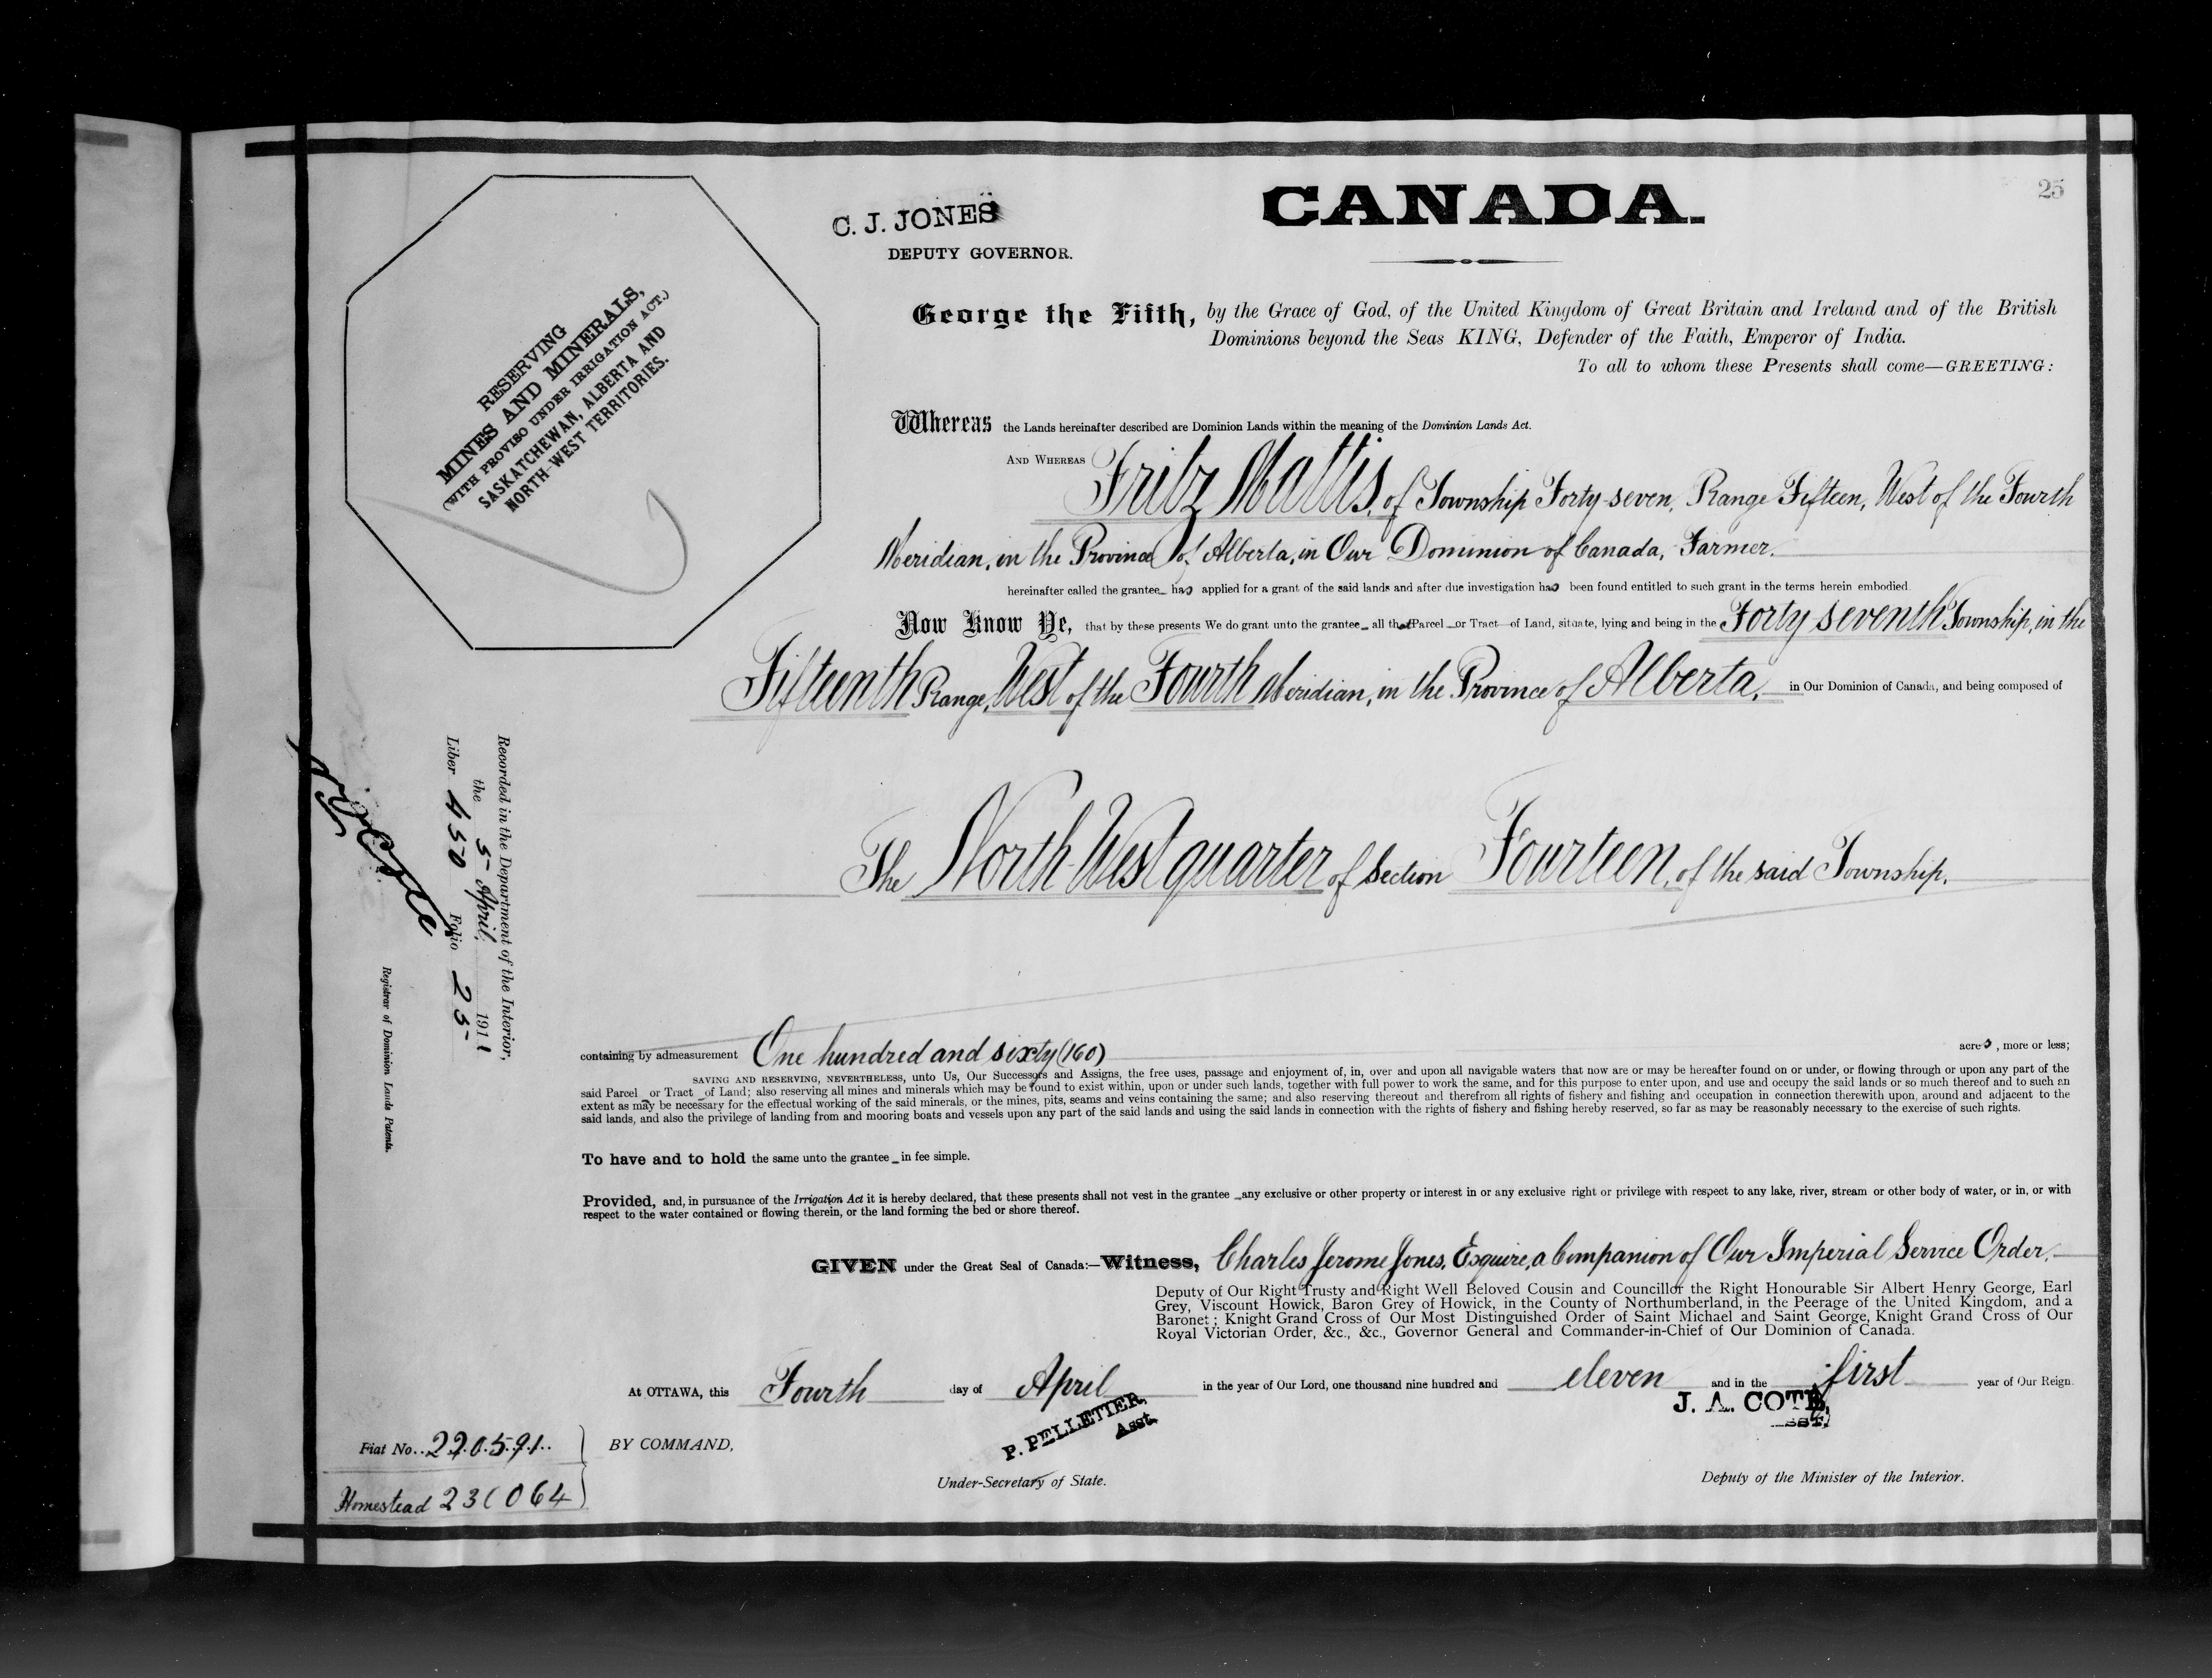 25
CANADA.
C. J. JONES
DEPUTY GOVERNOR.
RESERVING
MINES AND MINERALS,
(WITH PROVISO UNDER IRRIGATION ACT.)
SASKATCHEWAN, ALBERTA AND
NORTH-WEST TERRITORIES.
George the Fifth, by the Grace of God, of the United Kingdom of Great Britain and Ireland and of the British
Dominions beyond the Seas KING, Defender of the Faith, Emperor of India.
To all to whom these Presents shall come—GREETING:
Whereas the Lands hereinafter described are Dominion Lands within the meaning of the Dominion Lands Act.
AND WHEREAS Fritz Mattis, of Township Forty-seven, Range Fifteen, West of the Fourth
Meridian, in the Province of Alberta, in Our Dominion of Canada, Farmer.
hereinafter called the grantee has applied for a grant of the said lands and after due investigation has been found entitled to such grant in the terms herein embodied.
Now Know Ye, that by these presents We do grant unto the grantee all that Parcel or Tract of Land, situate, lying and being in the Forty seventh Township, in the
Fifteenth Range, West of the Fourth Meridian, in the Province of Alberta, in Our Dominion of Canada, and being composed of
The North-West quarter of Section Fourteen, of the said Township.
Recorded in the Department of the Interior,
the 5 April, 1911
Liber 450 Folio 25
Registrar of Dominion Lands Patents.
containing by admeasurement One hundred and sixty (160) acres, more or less;
SAVING AND RESERVING, NEVERTHELESS, unto Us, Our Successors and Assigns, the free uses, passage and enjoyment of, in, over and upon all navigable waters that now are or may be hereafter found on or under, or flowing through or upon any part of the
said Parcel or Tract of Land; also reserving all mines and minerals which may be found to exist within, upon or under such lands, together with full power to work the same, and for this purpose to enter upon, and use and occupy the said lands or so much thereof and to such an
extent as may be necessary for the effectual working of the said minerals, or the mines, pits, seams and veins containing the same; and also reserving thereout and therefrom all rights of fishery and fishing and occupation in connection therewith upon, around and adjacent to the
said lands, and also the privilege of landing from and mooring boats and vessels upon any part of the said lands and using the said lands in connection with the rights of fishery and fishing hereby reserved, so far as may be reasonably necessary to the exercise of such rights.
To have and to hold the same unto the grantee in fee simple.
Provided, and, in pursuance of the Irrigation Act it is hereby declared, that these presents shall not vest in the grantee any exclusive or other property or interest in or any exclusive right or privilege with respect to any lake, river, stream or other body of water, or in, or with
respect to the water contained or flowing therein, or the land forming the bed or shore thereof.
GIVEN under the Great Seal of Canada:—Witness, Charles Jerome Jones, Esquire, a Companion of Our Imperial Service Order,
Deputy of Our Right Trusty and Right Well Beloved Cousin and Councillor the Right Honourable Sir Albert Henry George, Earl
Grey, Viscount Howick, Baron Grey of Howick, in the County of Northumberland, in the Peerage of the United Kingdom, and a
Baronet; Knight Grand Cross of Our Most Distinguished Order of Saint Michael and Saint George, Knight Grand Cross of Our
Royal Victorian Order, &c., &c., Governor General and Commander-in-Chief of Our Dominion of Canada.
At OTTAWA, this Fourth day of April in the year of Our Lord, one thousand nine hundred and eleven and in the first year of Our Reign
P. PELLETIER,
Asst.
J. A. COTE,
Fiat No. 220591
BY COMMAND,
Under-Secretary of State.
Deputy of the Minister of the Interior.
Homestead 231064